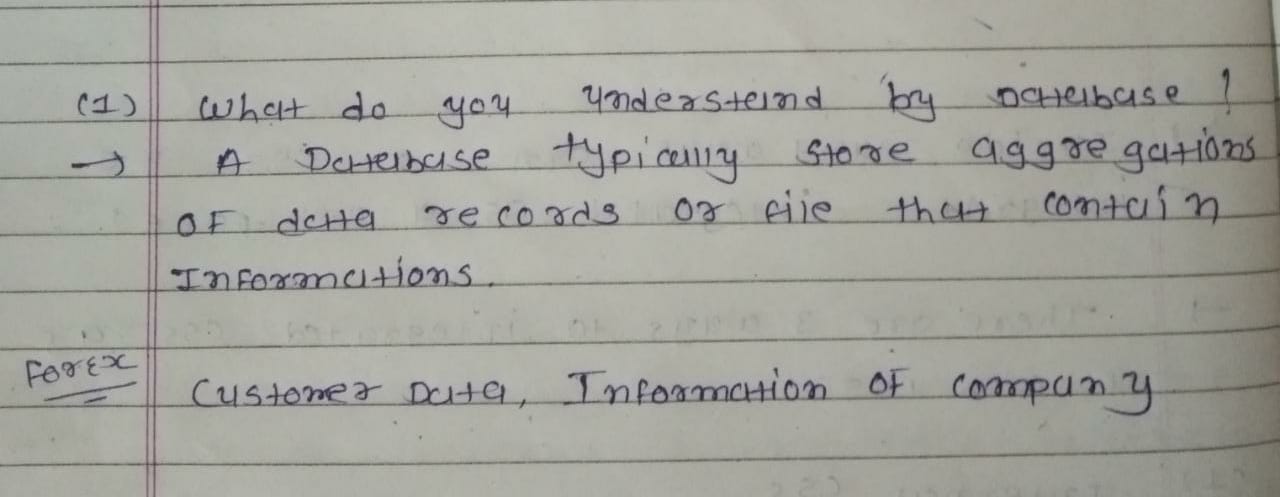 (1) What do you understand by Database ?
→ A Database typically store aggregations
OF data records or file that contain
Informations.
For Ex Customer Data, Information OF company